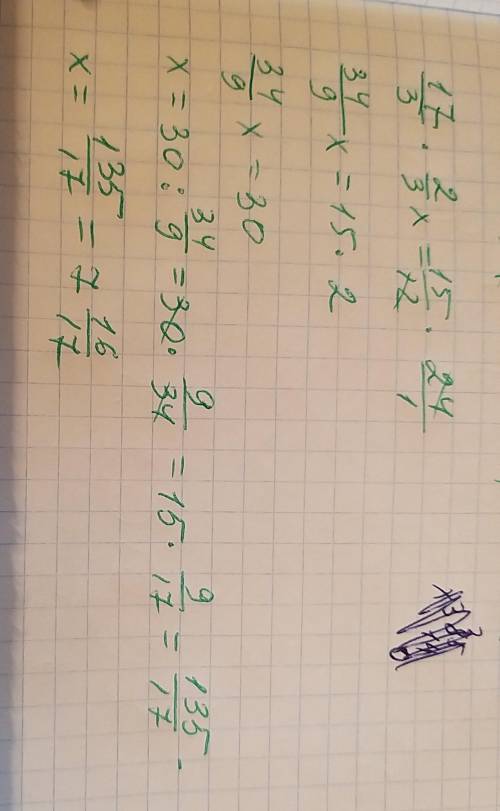 17/3 · 2/3 x = 15/12 · 24/1
34/9 x = 15 · 2
34/9 x = 30
x = 30 : 34/9 = 30 · 9/34 = 15 · 9/17 = 135/17.
x = 135/17 = 7 16/17